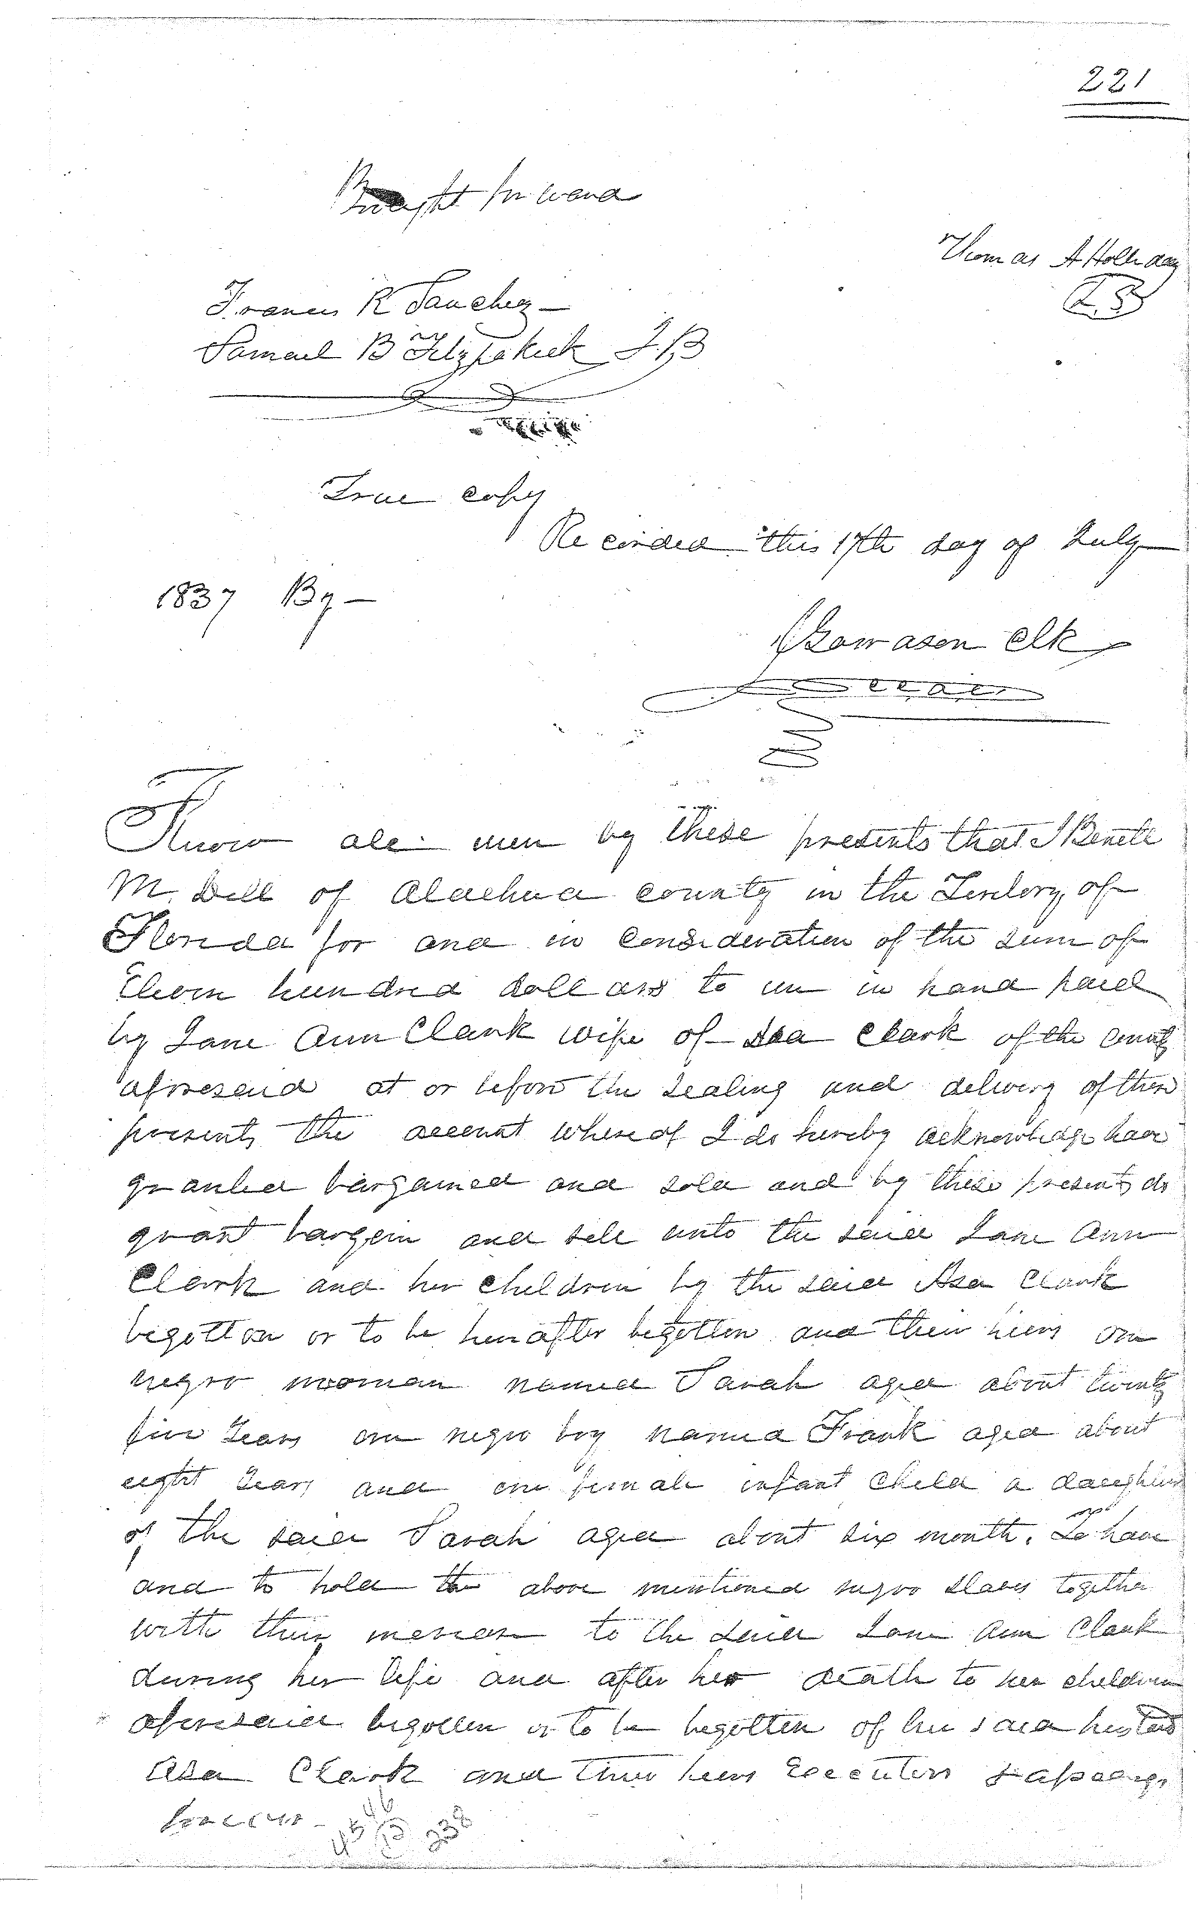 221
Brought forward
Thomas A Holliday
L.S
Francis R Sanchez
Samuel B Fitzpatrick J.P
True copy
Recorded this 17th day of July
1837 By
Clk
Know all men by these presents that I
M. Dell of Alachua county in the Teritory of
Florida for and in consideration of the sum of
Eleven hundred dollars to me in hand paid
by Jane Ann Clark wife of Asa Clark of the county
aforesaid at or before the sealing and delivery of these
presents the whereof I do hereby acknowledge have
granted bargained and sold and by these presents do
grant bargain and sell unto the said Jane Ann
Clark and her children by the said Asa Clark
begotten or to be hereafter begotten and their heirs one
negro woman named Sarah aged about twenty
five Years one negro boy named Frank aged about
eight Years and one female infant child a daughter
of the said Sarah aged about six month. To have
and to hold the above mentioned negro slaves together
with their to the said Jane Ann Clark
during her life and after her death to her children
aforesaid begotten or to be begotten of her said husband
Asa Clark and their heirs Executors